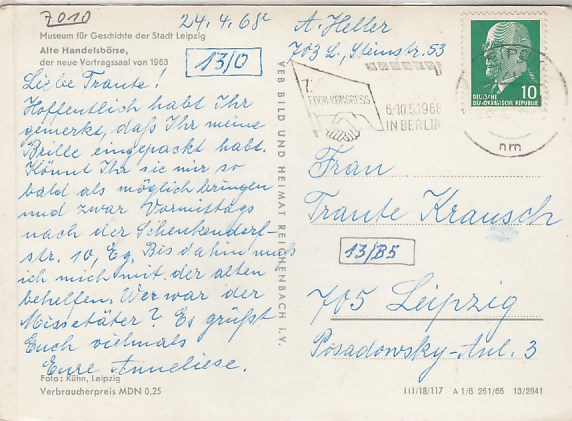 7010
24.4.68
A. Heller
703 L., Steinstr. 53
Museum für Geschichte der Stadt Leipzig
Alte Handelsbörse,
der neue Vortragssaal von 1963
13/0
Liebe Traute!
Hoffentlich habt Ihr
gemerkt, daß Ihr meine
Brille eingepackt habt.
Könnt Ihr sie mir so
bald als möglich bringen
und zwar Vormittags
nach der Schenkendorf-
str. 10, Eg. Bis dahin muß
ich mich mit der alten
behelfen. Wer war der
Missetäter? Es grüßt
Euch vielmals
Eure Anneliese.
Foto: Kühn, Leipzig
Verbraucherpreis MDN 0,25
VEB BILD UND HEIMAT REICHENBACH i. V.
7.
FDGB-KONGRESS
6.-10.5.1968
IN BERLIN
nm
10
DEUTSCHE
DEMOKRATISCHE REPUBLIK
Frau
Traute Krausch
13/B5
705 Leipzig
Posadowsky-Anl. 3
III/18/117 A 1/B 261/65 13/2841